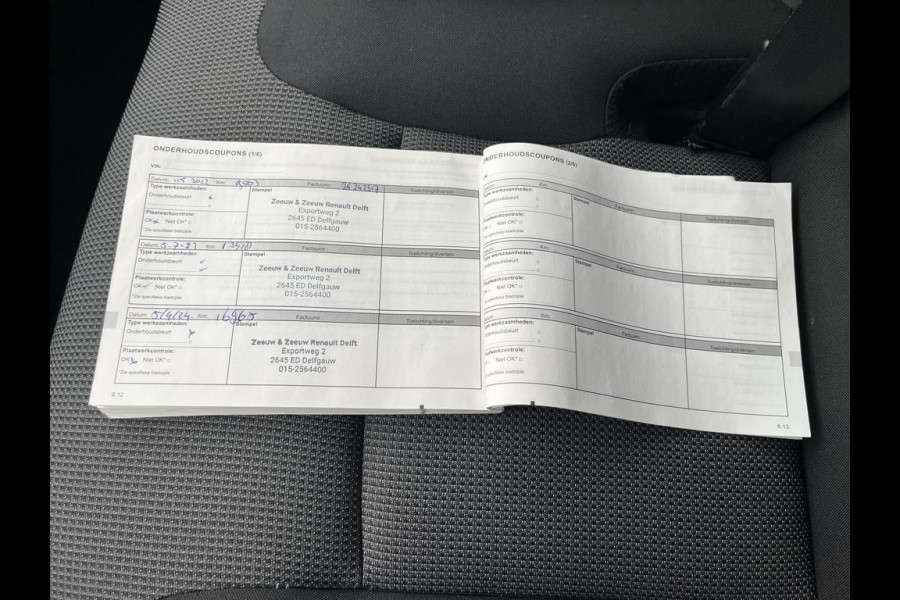 ONDERHOUDSCOUPONS (1/6)
VIN:
Datum: 2022 Km: Factuurnr.: Toelichting/diversen
Type werkzaamheden: Stempel
Onderhoudsbeurt
Zeeuw & Zeeuw Renault Delft
Exportweg 2
2645 ED Delfgauw
015-2564400
Plaatwerkcontrole:
OK Niet OK*
*Zie specifieke bladzijde
Datum: 5-7-23 Km: Factuurnr.: Toelichting/diversen
Type werkzaamheden: Stempel
Onderhoudsbeurt
Zeeuw & Zeeuw Renault Delft
Exportweg 2
2645 ED Delfgauw
015-2564400
Plaatwerkcontrole:
OK Niet OK*
*Zie specifieke bladzijde
Datum: 5/4/24 Km: 16965 Factuurnr.: Toelichting/diversen
Type werkzaamheden: Stempel
Onderhoudsbeurt
Zeeuw & Zeeuw Renault Delft
Exportweg 2
2645 ED Delfgauw
015-2564400
Plaatwerkcontrole:
OK Niet OK*
*Zie specifieke bladzijde
6.12
ONDERHOUDSCOUPONS (2/6)
Km: Factuurnr. Toelichting/diversen
Type werkzaamheden: Stempel
Onderhoudsbeurt
Plaatwerkcontrole:
Niet OK*
*Zie specifieke bladzijde
Km: Factuurnr. Toelichting/diversen
Type werkzaamheden: Stempel
Onderhoudsbeurt
Plaatwerkcontrole:
Niet OK*
*Zie specifieke bladzijde
Km: Factuurnr. Toelichting/diversen
Type werkzaamheden: Stempel
Onderhoudsbeurt
Plaatwerkcontrole:
Niet OK*
*Zie specifieke bladzijde
6.13